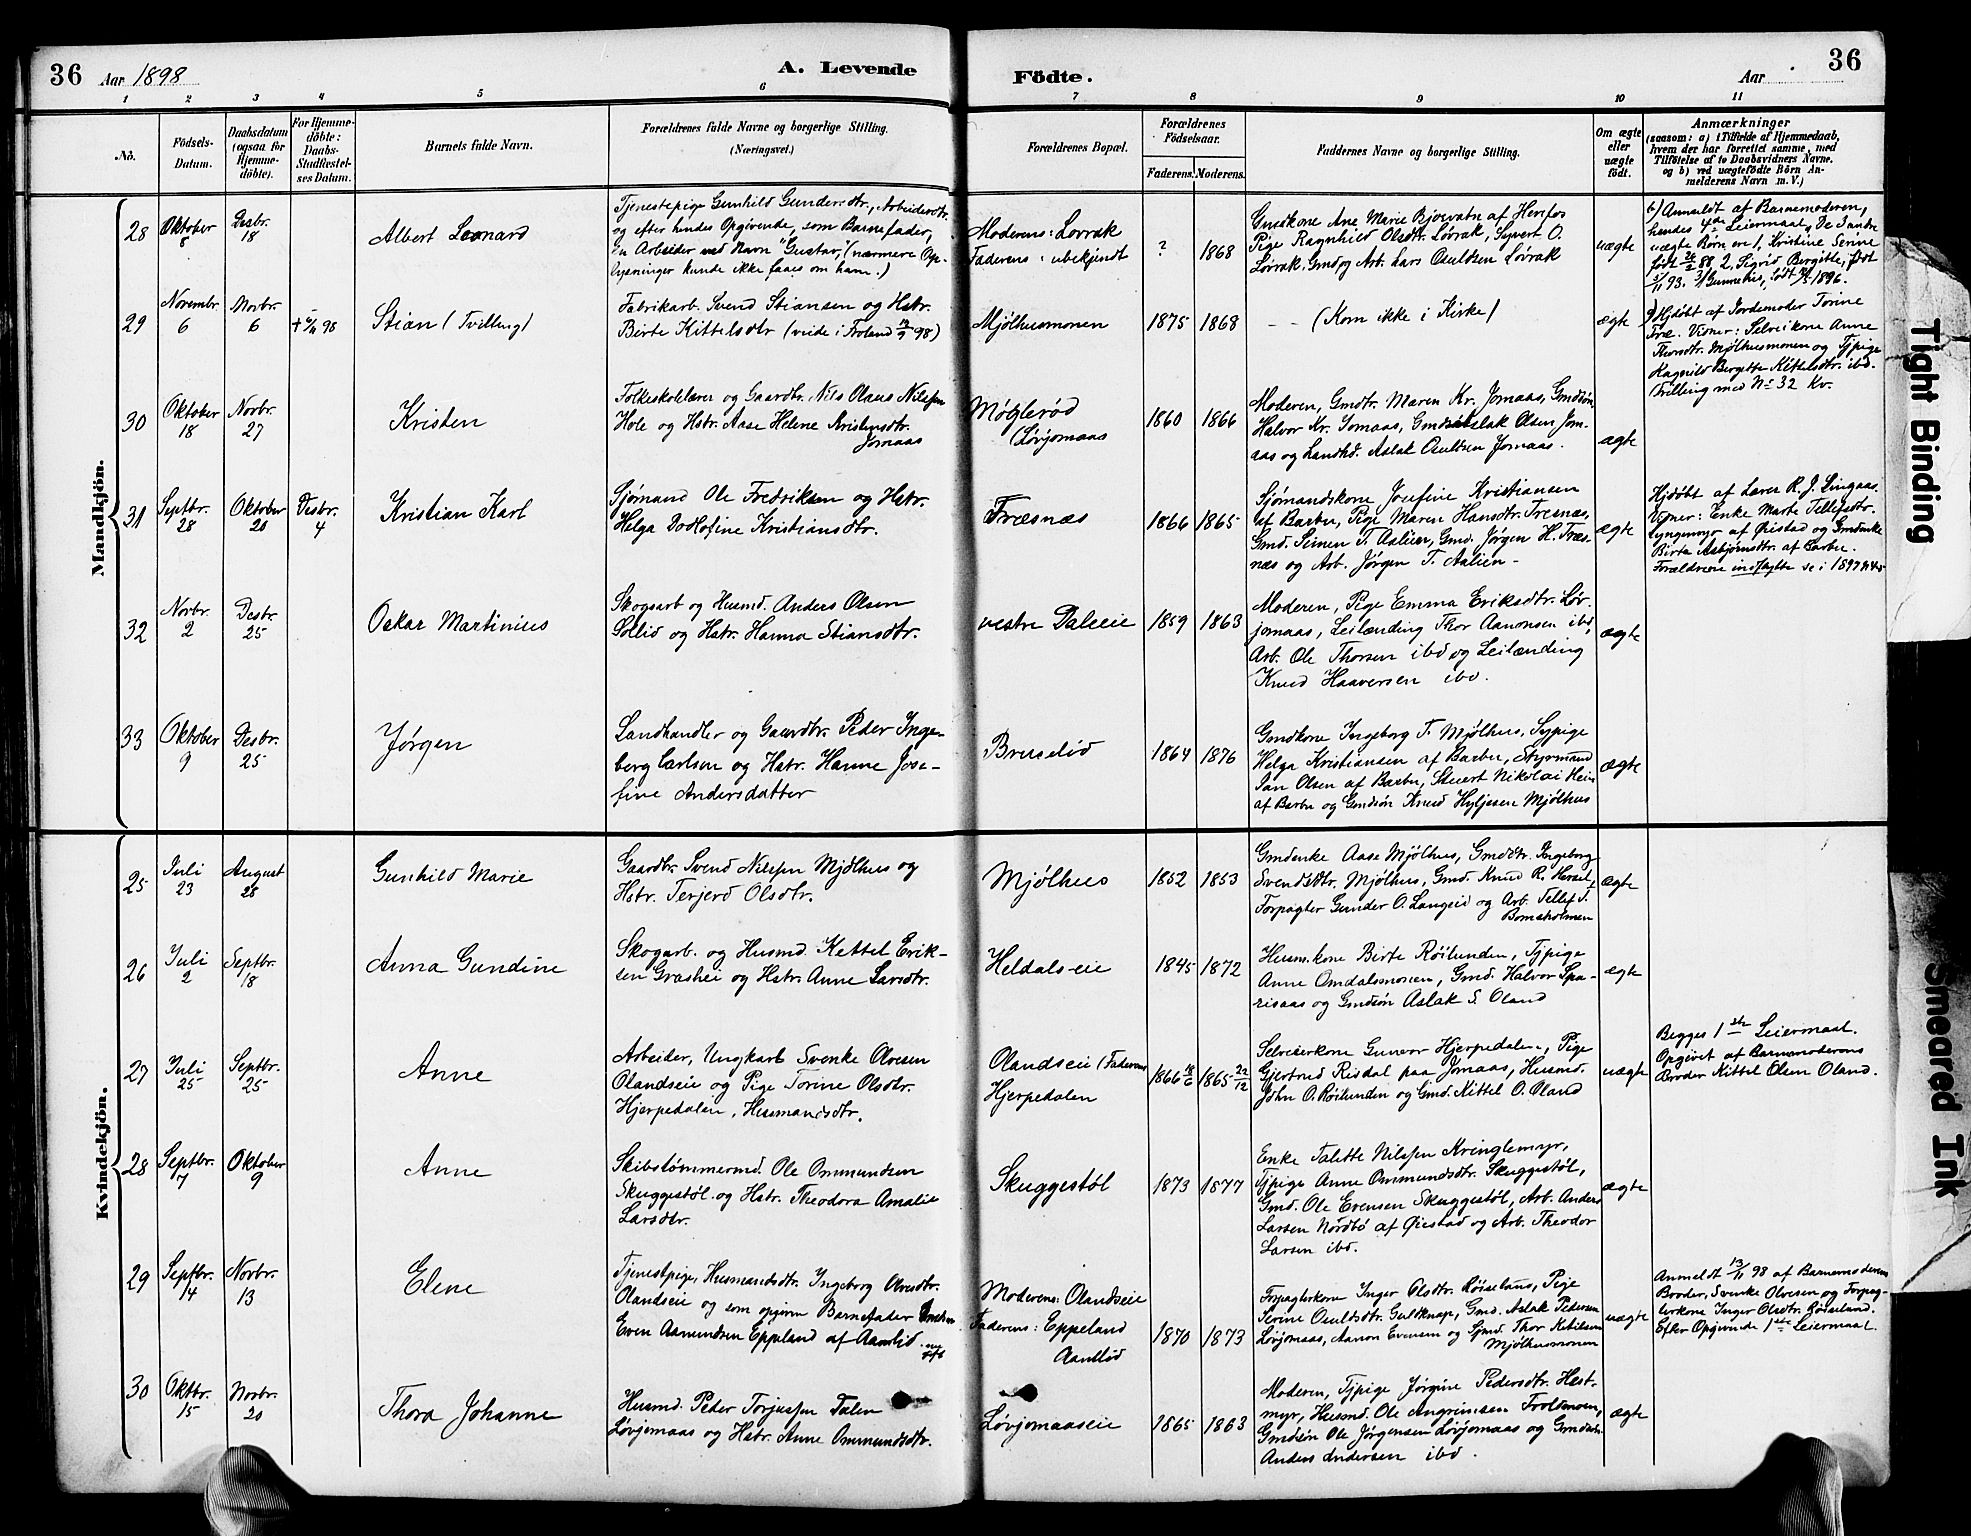 36 Aar 1898
A. Levende
Födte.
Aar
36
1 2 3 4 5 6 7 8 9 10 11
No.
Födsels-
Datum.
Daabsdatum
(ogsaa for
Hjemme-
döbte).
For Hjemme-
döbte:
Daabs-
Stadfæstel-
ses Datum.
Barnets fulde Navn.
Forældrenes fulde Navne og borgerlige Stilling.
(Næringsvei.)
Forældrenes Bopæl.
Forældrenes
Födselsaar.
Faderens. Moderens.
Faddernes Navne og borgerlige Stilling.
Om ægte
eller
uægte
födt.
Anmærkninger
(saasom: a) i Tilfælde af Hjemmedaab,
hvem der har forrettet samme, med
Tilföielse af to Daabsvidners Navne.
og b) ved uægtefödte Börn An-
melderens Navn m.V.)
Mandkjön.
28
Oktober
8
Desbr.
18
Albert Leonard
Tjenestepige Gunhild Gundersdtr., Arbeidersdtr.
og efter hendes Opgivende, som Barnefader,
en Arbeider ved Navn "Gustav", (nærmere Op-
lysninger kunde ikke faaes om ham.)
Moderens: Løvrak
Faderens: ubekjendt
?
1868
Gmdkone Ane Marie Bjorvatn af Herefos
Pige Ragnhild Olsdtr. Løvrak, Syvert O.
Løvrak, Gmd og Arb. Lars Osuldsen Løvrak
uægte
b) Anmeldt af Barnemoderen,
hendes 4de Leiermaal, De 3 andre
uægte Børn ere 1, Kristine Senne
født 88 2, Sigrid Bergitte, født
5/11 93. 3/ Gunnelius, født 1896.
29
Novembr.
6
Novbr.
6
+ 6/11 98
Stian (Tvilling)
Fabrikarb. Svend Stiansen og Hstr.
Birte Kittelsdtr (viede i Froland 98)
Mjölhusmonen
1875
1868
-- (Kom ikke i Kirke)
ægte
a) Hjdøbt af Jordemoder Torine
Træ. Vidner: Selveikone Anne
Thorsdtr. Mjølhusmonen og Tjpige
Ragnild Bergitte Kittelsdtr. ibd.
Tvilling med No 32 Kv.
30
Oktober
18
Novbr.
27
Kristen
Folkeskolelærer og Gaardbr. Nils Olaus Nilssen
Hole og Hstr. Aase Helene Kristensdtr.
Jomaas
Møglerød
(Løvjomaas
1860
1866
Moderen, Gmdtr. Maren Kr. Jomaas, Gmdsön
Halvor Kr. Jomaas, Gmdsön Aslak Olsen Jom-
aas og Landhd. Aslak Osuldsen Jomaas.
ægte
31
Septbr.
28
Oktober
20
Desbr.
4
Kristian Karl
Sjømand Ole Fredriksen og Hstr.
Helga Dodlofine Kristiansdtr.
Træsnæs
1866
1865
Sjømandskone Josefine Kristiansen
af Barbu, Pige Maren Hansdtr. Træsnæs,
Gmd. Simen T. Aalien, Gmd. Jørgen H. Træs-
næs og Arb. Jørgen T. Aalien -
ægte
Hjdøbt af Lærer R. J. Lingaas.
Vidner: Enke Marte Tellefsdtr.
Lyngmyr af Øiestad og Gmdenke
Birte Asbjørnsdtr. af Barbu.
Forældrene indflyttede se i 1897 № 45
32
Novbr.
2
Desbr.
25
Oskar Martinius
Skogsarb og Husmd. Anders Olsen
Sollid og Hstr. Hanna Stiansdtr.
vestre Daleeie
1859
1863
Moderen, Pige Emma Eriksdtr. Løv-
jomaas, Leilænding Thor Aanonsen ibd,
Arb. Ole Thorsen ibd og Leilænding
Knud Haaversen ibd.
ægte
33
Oktober
9
Desbr.
25
Jørgen
Landhandler og Gaardbr. Peder Inge-
berg Carlsen og Hstr. Hanne Jose-
fine Andersdatter
Bruselid
1864
1876
Gmdkone Ingeborg T. Mjølhus, Sypige
Helga Kristiansen af Barbu, Styrmand
Jan Olsen af Barbu, Stuert Nikolai Hein
af Barbu og Gmdsön Knud Hyljesen Mjølhus
ægte
Kvindekjön.
25
Juli
23
August
28
Gunhild Marie
Gaardbr. Svend Nilssen Mjølhus og
Hstr. Terjerd Olsdtr.
Mjølhus
1852
1853
Gmdenke Aase Mjølhus, Gmddtr. Ingeborg
Svendsdtr. Mjølhus, Gmd. Knud R.
Forpagter Gunder O. Langeid og Arb. Tellef T.
Bomsholmen
ægte
26
Juli
2
Septbr.
18
Anna Gundine
Skogarb. og Husmd. Kettel Erik-
sen Grashei og Hstr. Anne Larsdtr.
Heldalseie
1845
1872
Husm.kone Birte Röilunden, Tjpige
Anne Omdalsmonen, Gmd. Halvor Spa-
risaas og Gmdsøn Aslak S. Oland
ægte
27
Juli
25
Septbr.
25
Anne
Arbeider, Ungkarl Svenke Olvesen
Olandseie og Pige Torine Olsdtr.
Hjerpedalen, Husmandsdtr.
Olandseie (Faderens
Hjerpedalen
1866 18/6
1865 22/12
Selveierkone Gunvor Hjerpedalen, Pige
Gjertrud Risdal paa Jomaas, Husmd.
John O. Röilunden og Gmd. Kittel O. Oland
uægte
Begges 1ste Leiermaal.
Opgivet af Barnemoderens
Broder Kittel Olsen Oland.
28
Septbr.
7
Oktober
9
Anne
Skibstømmermd. Ole Ommundsen
Skuggestöl og Hstr. Theodora Amalie
Larsdtr.
Skuggestöl
1873
1877
Enke Talette Nilssen Kringlemyr,
Tjpige Anne Ommundsdtr. Skuggestøl,
Gmd. Ole Evensen Skuggestøl, Arb. Anders
Larsen Nordbö af Øiestad og Arb. Theodor
Larsen ibd.
ægte
29
Septbr.
14
Novbr.
13
Elene
Tjenestpige, Husmandsdtr. Ingeborg Olvesdtr.
Olandseie og som opgivne Barnefader
Even Aamundsen Eppland af Aamlid.
Moderens: Olandseie
Faderens: Eppeland
Aamlid
1870
1873
Forpagterkone Inger Olsdtr. Röiseland, Pige
Serine Osuldsdtr. Guldknap, Gmd. Aslak Pedersen
Løvjomaas, Aanon Evensen og Sjmd. Thor Ketilsen
Mjølhusmonen
uægte
Anmeldt 13/11 98 af Barnemoderens
Broder, Svenke Olvesen og Forpag-
terkone Inger Olsdtr. Röiseland.
Efter Opgivende 1ste Leiermaal.
30
Oktbr.
15
Novbr.
20
Thora Johanne
Husmd. Peder Torjussen Dalen
Løvjomaas og Hstr. Anne Ommundsdtr.
Løvjomaaseie
1865
1863
Moderen, Tjpige Jørgine Pedersdtr. Hest-
myr, Husmd. Ole Angrimsen Troldmoen,
Gmdsön Ole Jørgensen Løvjomaas og Gmdsön
Anders Andersen ibd.
ægte
Tight Binding
Smeared Ink